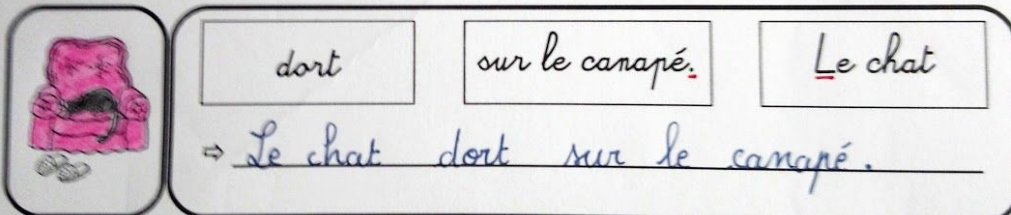 dort sur le canapé. Le chat
⇨ Le chat dort sur le canapé.